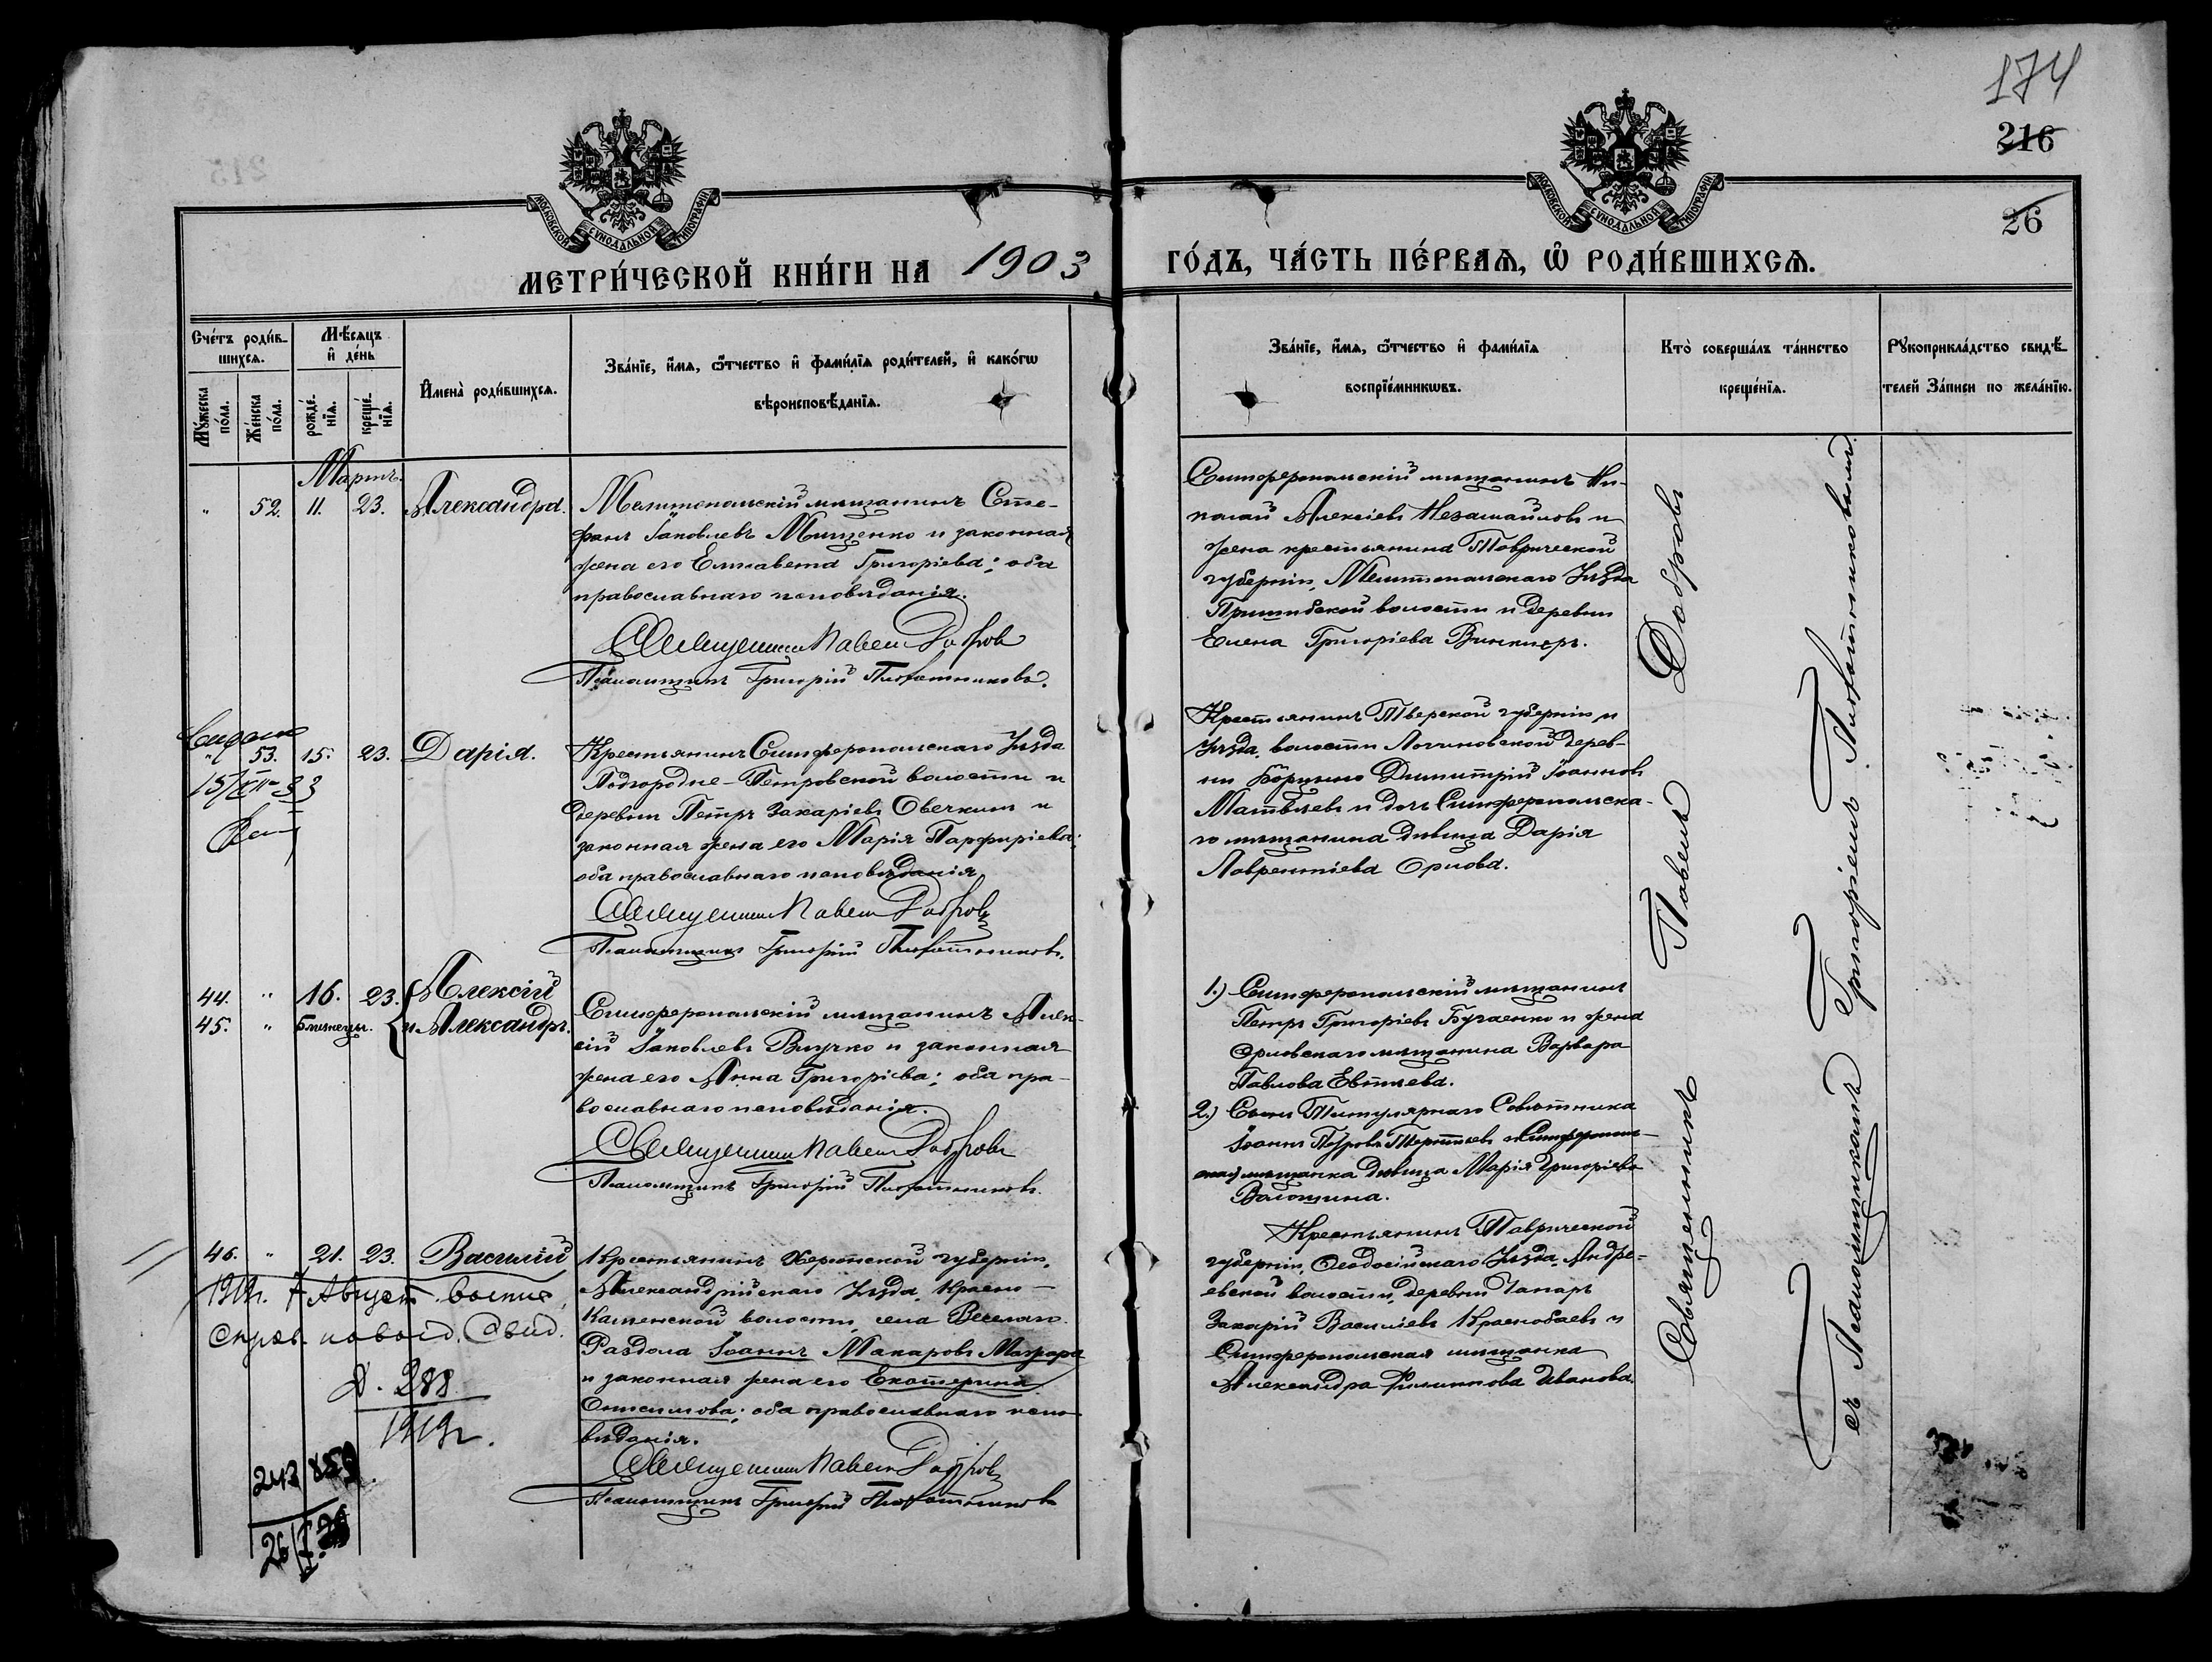 174
216
26
МОСКОВСКОЙ СѴНОДАЛЬНОЙ ТИПОГРАФІИ
МОСКОВСКОЙ СѴНОДАЛЬНОЙ ТИПОГРАФІИ
МЕТРИ́ЧЕСКОЙ КНИ́ГИ НА 1903 ГО́ДЪ, ЧА́СТЬ ПЕ́РВАѦ, Ѡ҆ РОДИ́ВШИХСѦ.
Сче́тъ роди́в-
шихсѧ.
Мѣ́сѧцъ
и҆ де́нь
Мꙋ́жеска
по́ла.
Же́нска
по́ла.
рожде́-
нїѧ.
креще́-
нїѧ.
И҆мена̀ роди́вшихсѧ.
Зва́нїе, и҆́мѧ, ѻ҆́тчество и҆ фами́лїѧ роди́телей, и҆ како́гѡ
вѣроисповѣ́данїѧ.
Зва́нїе, и҆́мѧ, ѻ҆́тчество и҆ фами́лїѧ
воспрїе́мникѡвъ.
Кто̀ соверша́лъ та́инство
креще́нїѧ.
Рꙋкоприкла́дство свидѣ́-
телей за́писи по жела́нїю.
Мартъ.
" 52. 11. 23. Александра.
Мелитопольскій мѣщанинъ Сте-
фанъ Іаковлевъ Мищенко и законная
жена его Елисавета Григоріева; оба
православнаго исповѣданія.
Священникъ Павелъ Добровъ
Псаломщикъ Григорій Плохотниковъ.
Симферопольскій мѣщанинъ Ни-
колай Алексіевъ Незамайловъ и
жена крестьянина Таврической
губерніи, Мелитопольскаго уѣзда
Пришибской волости и деревни
Елена Григоріева Винклеръ.
" 53. 15. 23. Дарія.
15/XII-33
Крестьянинъ Симферопольскаго уѣзда
Подгородне-Петровской волости и
деревни Петръ Захаріевъ Овечкинъ и
законная жена его Марія Парфиріева;
оба православнаго исповѣданія
Священникъ Павелъ Добровъ
Псаломщикъ Григорій Плохотниковъ.
Крестьянинъ Тверской губерніи и
уѣзда, волости Логиновской дерев-
ни Димитрій Іоанновъ
Матвѣевъ и дочь Симферопольска-
го мѣщанина дѣвица Дарія
Лаврентіева Орлова.
44. " 16. 23. Алексій
45. " близнецы. и Александръ.
Симферопольскій мѣщанинъ Алек-
сій Іаковлевъ Вичко и законная
жена его Анна Григоріева; оба пра-
вославнаго исповѣданія.
Священникъ Павелъ Добровъ
Псаломщикъ Григорій Плохотниковъ.
1.) Симферопольскій мѣщанинъ
Петръ Григоріевъ Бугаенко и жена
Орловскаго мѣщанина Варвара
Павлова Евтѣева.
2.) Сынъ Титулярнаго Совѣтника
Іоаннъ Петровъ и Симферополь-
ская мѣщанка дѣвица Марія Григоріева
Волошина.
46. " 21. 23. Василій
1919г. 7 Август
Д. 288
1919г.
Крестьянинъ Херсонской губерніи,
Александрійскаго уѣзда, Красно-
Каменской волости, села Веселаго
Раздола Іоаннъ Макаровъ
и законная жена его Екатерина
Онисимова; оба православнаго испо-
вѣданія.
Священникъ Павелъ Добровъ
Псаломщикъ Григорій Плохотниковъ
Крестьянинъ Таврической
губерніи, Ѳеодосійскаго уѣзда, Андре-
евской волости, деревни
Захарій Василіевъ Краснобаевъ и
Симферопольская мѣщанка
Александра Филиппова Иванова.
Священникъ Павелъ Добровъ
съ Псаломщикомъ Григоріемъ Плохотниковымъ.